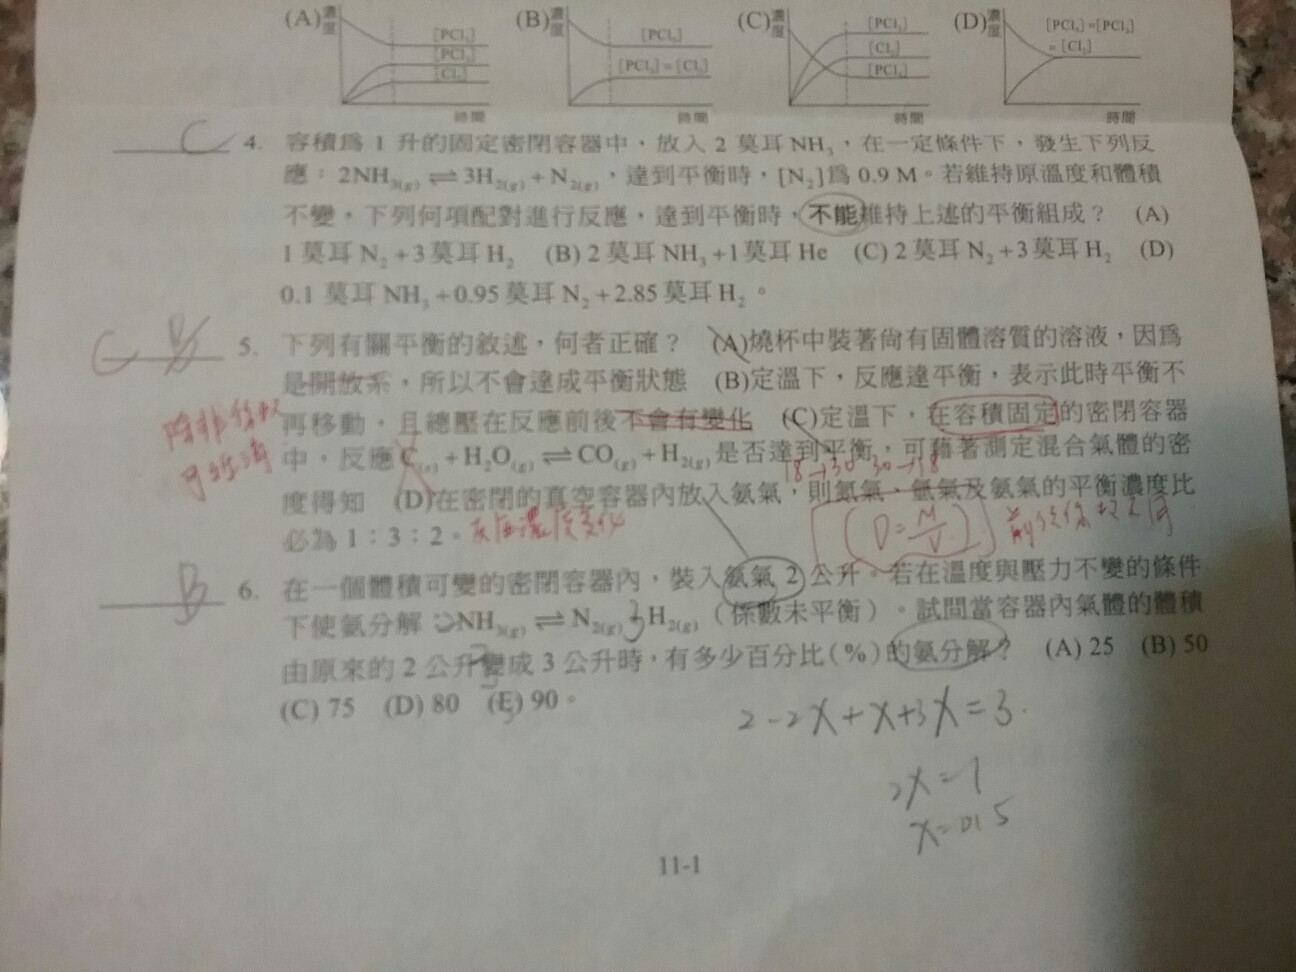 (A) 濃度 [PCl₅] [PCl₃] [Cl₂] 時間 (B) 濃度 [PCl₅] [PCl₃]=[Cl₂] 時間 (C) 濃度 [PCl₃] [Cl₂] [PCl₅] 時間 (D) 濃度 [PCl₅]=[PCl₃]=[Cl₂] 時間
C 4. 容積為 1 升的固定密閉容器中，放入 2 莫耳 NH₃，在一定條件下，發生下列反
應：2NH₃(g) ⇌ 3H₂(g) + N₂(g)，達到平衡時，[N₂]為 0.9 M。若維持原溫度和體積
不變，下列何項配對進行反應，達到平衡時，不能維持上述的平衡組成？ (A)
1 莫耳 N₂ +3 莫耳 H₂ (B) 2 莫耳 NH₃ +1 莫耳 He (C) 2 莫耳 N₂ +3 莫耳 H₂ (D)
0.1 莫耳 NH₃ +0.95 莫耳 N₂ +2.85 莫耳 H₂。
C 5. 下列有關平衡的敘述，何者正確？ (A)燒杯中裝著尚有固體溶質的溶液，因為
是開放系，所以不會達成平衡狀態 (B)定溫下，反應達平衡，表示此時平衡不
再移動，且總壓在反應前後不會有變化 (C)定溫下，在容積固定的密閉容器
除非係數
中，反應 C(s) + H₂O(g) ⇌ CO(g) + H₂(g) 是否達到平衡，可藉著測定混合氣體的密
18→30 30→18
度得知 (D)在密閉的真空容器內放入氨氣，則氮氣、氫氣及氨氣的平衡濃度比
必為 1：3：2。
(D=M/V)
B 6. 在一個體積可變的密閉容器內，裝入氨氣 2 公升。若在溫度與壓力不變的條件
下使氨分解：2NH₃(g) ⇌ N₂(g) 3 H₂(g)（係數未平衡）。試問當容器內氣體的體積
由原來的 2 公升變成 3 公升時，有多少百分比（%）的氨分解？ (A) 25 (B) 50
(C) 75 (D) 80 (E) 90。
2-2x+x+3x=3
2x=1
x=0.5
11-1